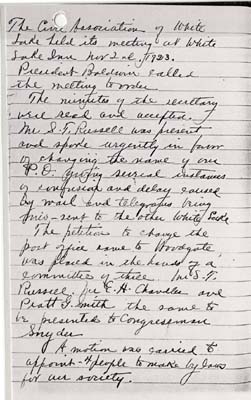 The Civic Association of White
Lake held its meeting at White
Lake Inn Nov 2nd, 1923.
President Baldwin called
the meeting to order
The minutes of the secretary
were read and accepted.
Mr. S.T. Russell was present
and spoke urgently in favor
of changing the name of our
P.O. giving several instances
of confusion and delay caused
by mail and telegrams being
miss-sent to the other White Lake
The petition to change the
post office name to Woodgate,
was placed in the hands of a
committee of three. Mr S.T.
Russell, Mr C.H. Chandler and
Pratt G. Smith the same to
be presented to Congressman
Snyder
A motion was carried to
appoint 4 people to make by laws
for our society.